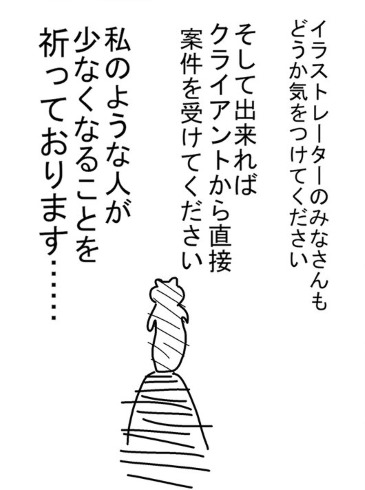 イラストレーターのみなさんも
どうか気をつけてください
そして出来れば
クライアントから直接
案件を受けてください
私のような人が
少なくなることを
祈っております……